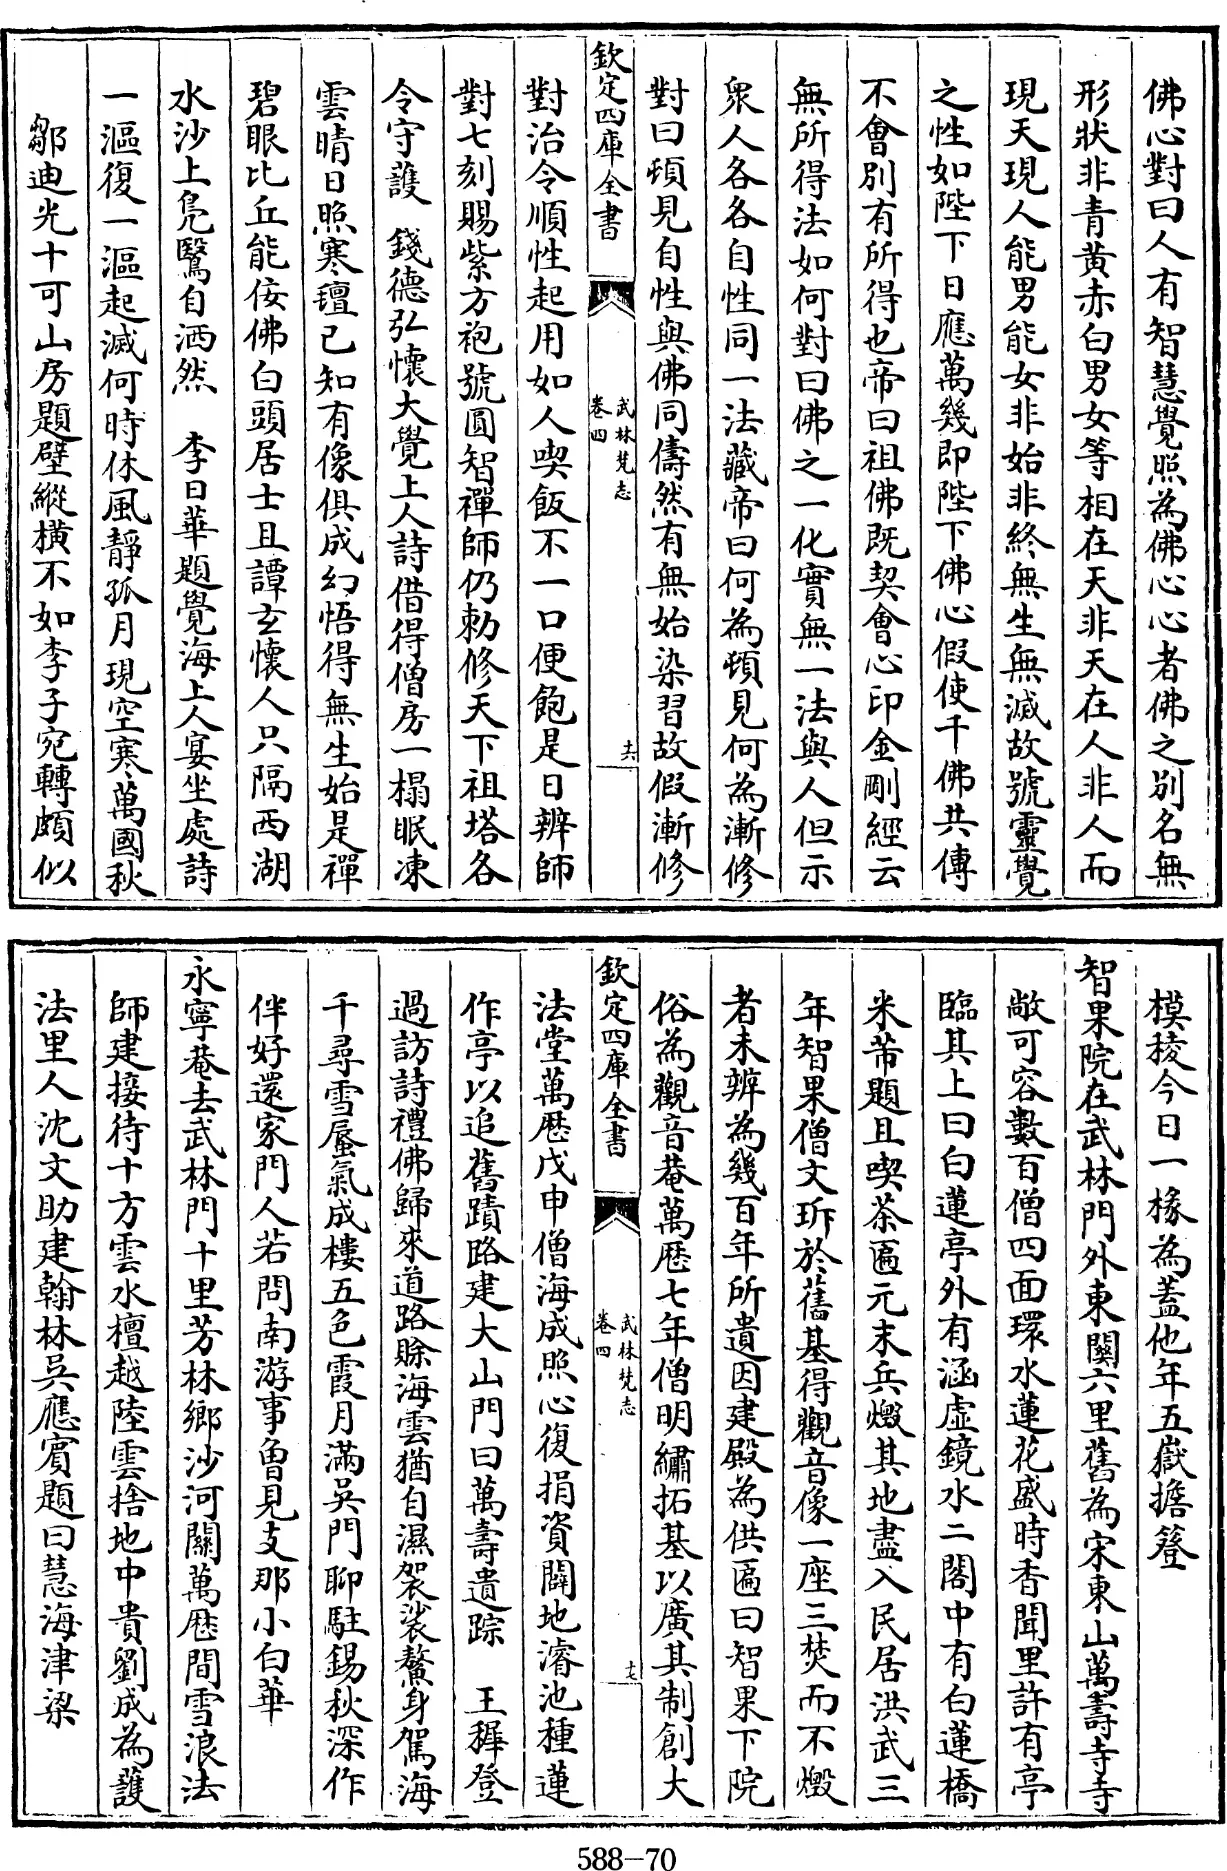 佛心對曰人有智慧覺照為佛心心者佛之别名無
形狀非青黄赤白男女等相在天非天在人非人而
現天現人能男能女非始非終無生無滅故號靈覺
之性如陛下日應萬幾即陛下佛心假使千佛共傳
不會别有所得也帝曰祖佛既契會心印金剛經云
無所得法如何對曰佛之一化實無一法與人但示
衆人各各自性同一法藏帝曰何為頓見何為漸修
對曰頓見自性與佛同儔然有無始染習故假漸修
欽定四庫全書
武林梵志
卷四
十六
對治令順性起用如人喫飯不一口便飽是日辨師
對七刻賜紫方袍號圓智禪師仍勅修天下祖塔各
令守護 錢德弘懷大覺上人詩借得僧房一榻眠凍
雲晴日照寒氊已知有像俱成幻悟得無生始是禪
碧眼比丘能侫佛白頭居士且譚玄懷人只隔西湖
水沙上鳬鷖自洒然 李日華題覺海上人宴坐處詩
一漚復一漚起滅何時休風靜孤月現空寒萬國秋
鄒迪光十可山房題壁縱横不如李子宛轉頗似
模稜今日一椽為蓋他年五嶽擔簦
智果院在武林門外東關六里舊為宋東山萬壽寺寺
敞可容數百僧四面環水蓮花盛時香聞里許有亭
臨其上曰白蓮亭外有涵虛鏡水二閣中有白蓮橋
米芾題且喫茶匾元末兵燬其地盡入民居洪武三
年智果僧文玡於舊基得觀音像一座三焚而不燬
者未辨為幾百年所遺因建殿為供匾曰智果下院
俗為觀音菴萬厯七年僧明繡拓基以廣其制創大
欽定四庫全書
武林梵志
卷四
十七
法堂萬厯戊申僧海成照心復捐資闢地濬池種蓮
作亭以追舊蹟路建大山門曰萬壽遺踪 王穉登
過訪詩禮佛歸來道路賒海雲猶自濕袈裟鰲身駕海
千尋雪蜃氣成樓五色霞月滿吳門聊駐錫秋深作
伴好還家門人若問南游事曾見支那小白華
永寧菴去武林門十里芳林鄉沙河關萬厯間雪浪法
師建接待十方雲水檀越陸雲捨地中貴劉成為護
法里人沈文助建翰林吳應賓題曰慧海津梁
588-70